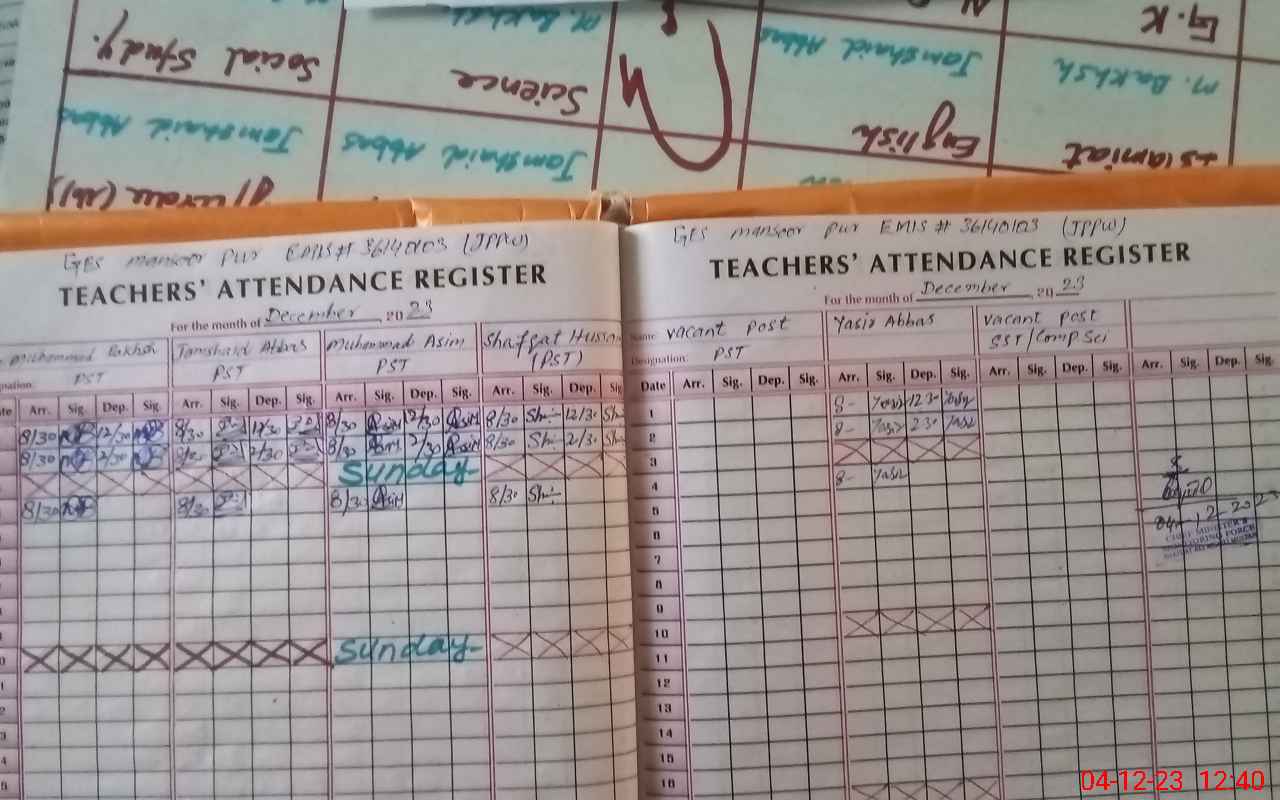 G.K
Social Study.
M. Bakhsh
Science
Jamshaid Abbas
M. Bakhsh
English
Islamiat
Jamshaid Abbas
Jamshaid Abbas
GES mansoor pur EMIS# 36140103 (JPPW)
TEACHERS' ATTENDANCE REGISTER
For the month of December 2023
Muhammad Bakhsh Jamshaid Abbas Muhammad Asim Shafqat Hussain
PST PST PST (PST)
Arr. Sig. Dep. Sig. Arr. Sig. Dep. Sig. Arr. Sig. Dep. Sig. Arr. Sig. Dep. Sig
8/30 12/30 8/30 12/30 8/30 Asim 12/30 Asim 8/30 Sh 12/30 Sh
8/30 2/30 8/30 2/30 8/30 Asim 2/30 Asim 8/30 Sh 2/30 Sh
Sunday
8/30 8/30 8/30 Asim 8/30 Sh
Sunday
GES mansoor pur EMIS # 36140103 (JPPW)
TEACHERS' ATTENDANCE REGISTER
For the month of December 2023
Name: vacant post Yasir Abbas vacant post
Designation: PST SST/Comp Sci
Date Arr. Sig. Dep. Sig. Arr. Sig. Dep. Sig. Arr. Sig. Dep. Sig. Arr. Sig. Dep. Sig.
1 8- Yasir 12 30 Yasir
2 8- Yasir 2 30 Yasir
3
4 8- Yasir
5
04-12-2023
6
CHIEF MINISTER'S
MONITORING FORCE
7
8
9
10
11
12
13
14
15
16
04-12-23 12:40